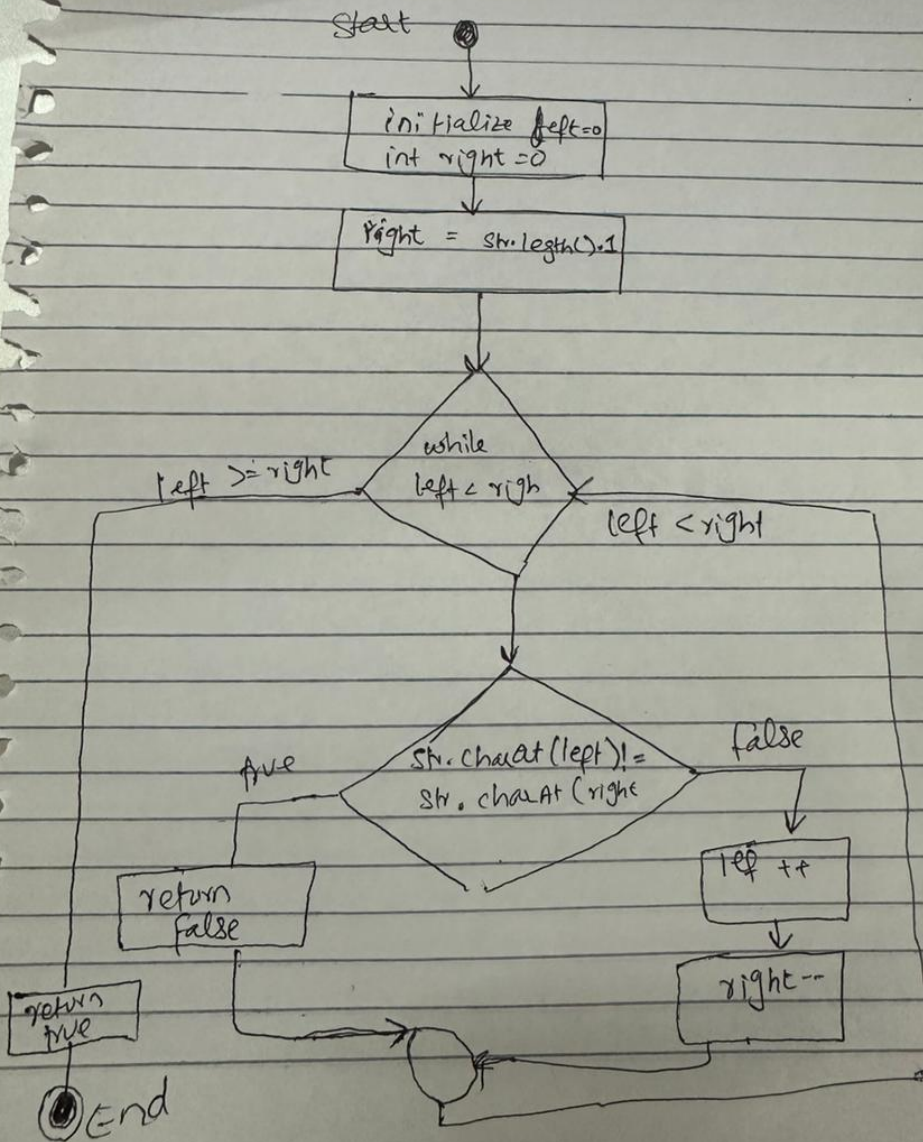 Start
initialize left=0
int right =0
right = str.legth().1
while
left < righ
left >= right
left < right
str.charAt(left)!=
str.charAt(right
true
false
lef ++
return
false
right--
return
true
End